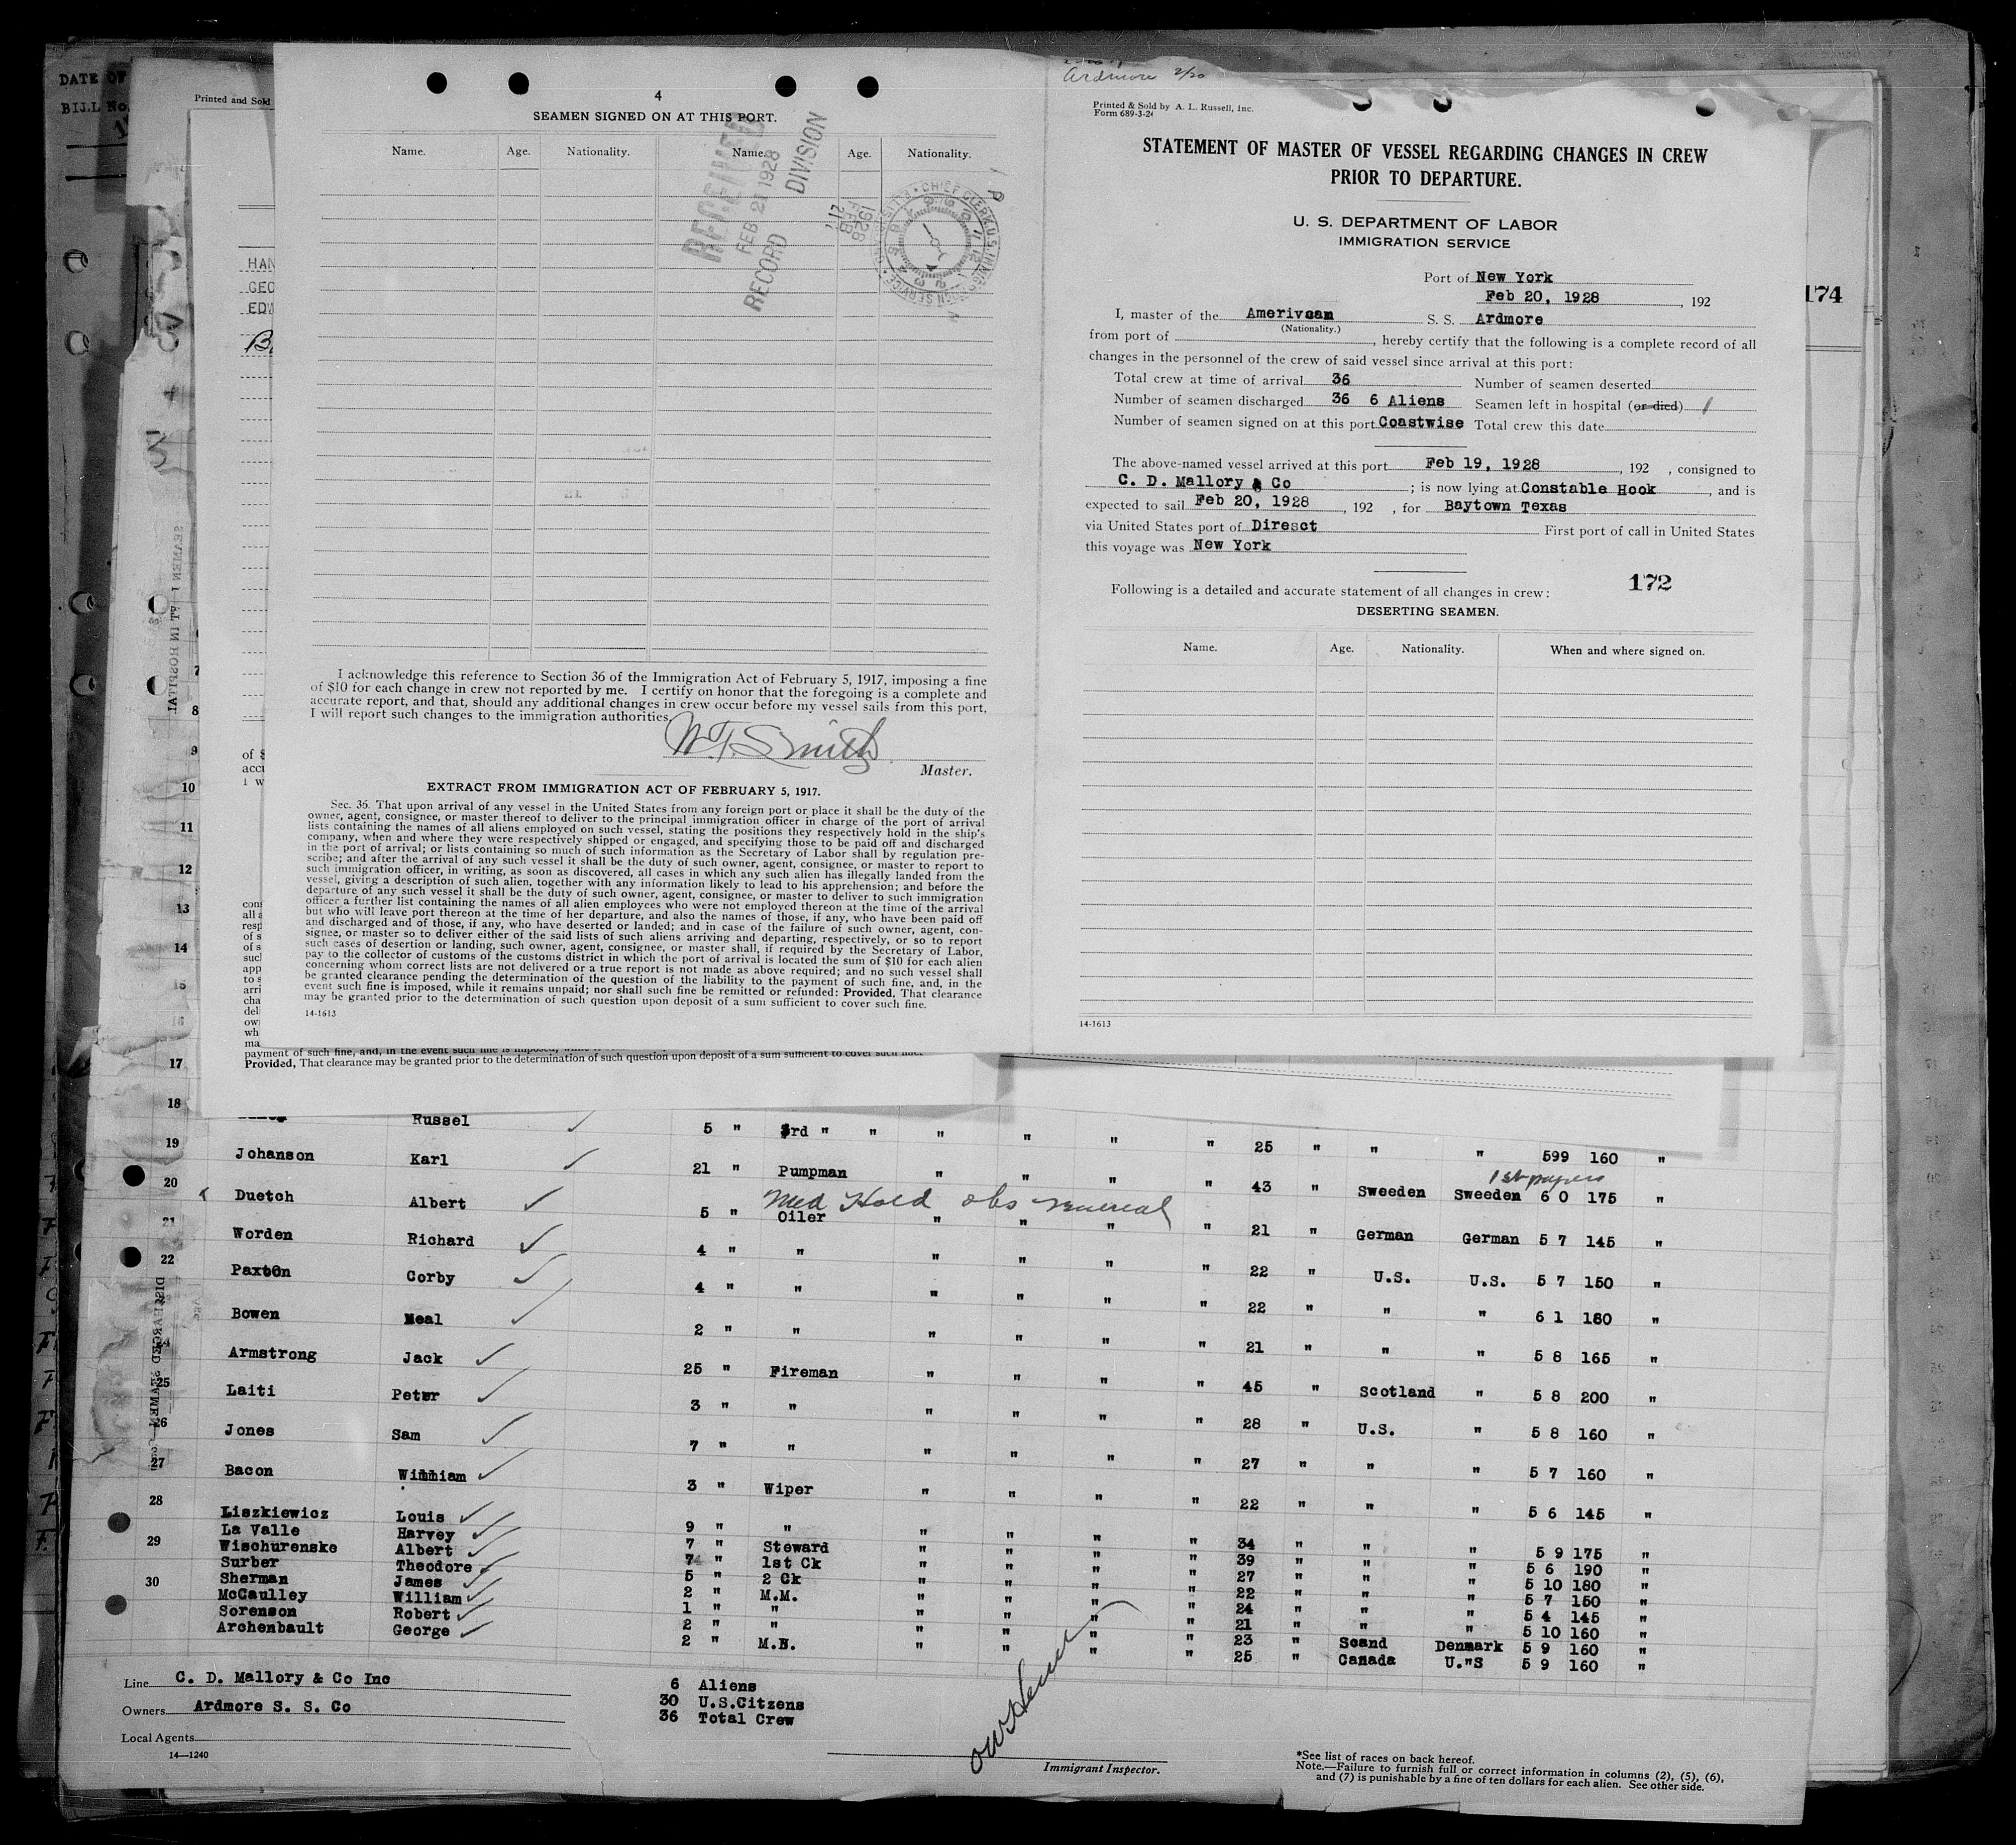 DATE OF
BILL No.
Printed and Sold
HAN
GEO
EDW
4
SEAMEN SIGNED ON AT THIS PORT.
Name. Age. Nationality. Name. Age. Nationality.
RECEIVED
FEB 21 1928
RECORD DIVISION
FEB 21
1928
I acknowledge this reference to Section 36 of the Immigration Act of February 5, 1917, imposing a fine
of $10 for each change in crew not reported by me. I certify on honor that the foregoing is a complete and
accurate report, and that, should any additional changes in crew occur before my vessel sails from this port,
I will report such changes to the immigration authorities.
W. T. Smith
Master.
EXTRACT FROM IMMIGRATION ACT OF FEBRUARY 5, 1917.
Sec. 36. That upon arrival of any vessel in the United States from any foreign port or place it shall be the duty of the
owner, agent, consignee, or master thereof to deliver to the principal immigration officer in charge of the port of arrival
lists containing the names of all aliens employed on such vessel, stating the positions they respectively hold in the ship's
company, when and where they were respectively shipped or engaged, and specifying those to be paid off and discharged
in the port of arrival; or lists containing so much of such information as the Secretary of Labor shall by regulation pre-
scribe; and after the arrival of any such vessel it shall be the duty of such owner, agent, consignee, or master to report to
such immigration officer, in writing, as soon as discovered, all cases in which any such alien has illegally landed from the
vessel, giving a description of such alien, together with any information likely to lead to his apprehension; and before the
departure of any such vessel it shall be the duty of such owner, agent, consignee, or master to deliver to such immigration
officer a further list containing the names of all alien employees who were not employed thereon at the time of the arrival
but who will leave port thereon at the time of her departure, and also the names of those, if any, who have been paid off
and discharged and of those, if any, who have deserted or landed; and in case of the failure of such owner, agent, con-
signee, or master so to deliver either of the said lists of such aliens arriving and departing, respectively, or so to report
such cases of desertion or landing, such owner, agent, consignee, or master shall, if required by the Secretary of Labor,
pay to the collector of customs of the customs district in which the port of arrival is located the sum of $10 for each alien
concerning whom correct lists are not delivered or a true report is not made as above required; and no such vessel shall
be granted clearance pending the determination of the question of the liability to the payment of such fine, and, in the
event such fine is imposed, while it remains unpaid; nor shall such fine be remitted or refunded: Provided, That clearance
may be granted prior to the determination of such question upon deposit of a sum sufficient to cover such fine.
14-1613
Ardmore 2/20
Printed & Sold by A. L. Russell, Inc.
Form 689-3-24
STATEMENT OF MASTER OF VESSEL REGARDING CHANGES IN CREW
PRIOR TO DEPARTURE.
U. S. DEPARTMENT OF LABOR
IMMIGRATION SERVICE
Port of New York
Feb 20, 1928, 192
I, master of the Amerivcan S. S. Ardmore
(Nationality.)
from port of , hereby certify that the following is a complete record of all
changes in the personnel of the crew of said vessel since arrival at this port:
Total crew at time of arrival 36 Number of seamen deserted
Number of seamen discharged 36 6 Aliens Seamen left in hospital (or died) 1
Number of seamen signed on at this port Coastwise Total crew this date
The above-named vessel arrived at this port Feb 19, 1928, 192 , consigned to
C. D. Mallory & Co ; is now lying at Constable Hook, and is
expected to sail Feb 20, 1928, 192 , for Baytown Texas
via United States port of Diresct First port of call in United States
this voyage was New York
172
Following is a detailed and accurate statement of all changes in crew:
DESERTING SEAMEN.
Name. Age. Nationality. When and where signed on.
14-1613
174
payment of such fine, and, in the event such fine is imposed,
Provided, That clearance may be granted prior to the determination of such question upon deposit of a sum sufficient to cover such fine.
7
8
9
10
11
12
13
14
15
16
17
18 Russel 5 " 3rd " " " " " " 25 " " " 599 160 "
19 Johanson Karl 21 " Pumpman " " " " 43 " Sweeden Sweeden 6 0 175 "
1st papers
20 Duetch Albert 5 " Oiler " " " " 21 " German German 5 7 145 "
Med Hold obs venereal
21 Worden Richard 4 " " " " " " 22 " U.S. U.S. 5 7 150 "
22 Paxton Corby 4 " " " " " " 22 " " " 6 1 180 "
Bowen Neal 2 " " " " " " 21 " " " 5 8 165 "
24 Armstrong Jack 25 " Fireman " " " " 45 " Scotland " 5 8 200 "
25 Laiti Peter 3 " " " " " " 28 " U.S. " 5 8 160 "
26 Jones Sam 7 " " " " " " 27 " " " 5 7 160 "
27 Bacon William 3 " Wiper " " " " 22 " " " 5 6 145 "
28 Liszkiewicz Louis 9 " " " " " " 34 " " " 5 9 175 "
La Valle Harvey 7 " Steward " " " " 39 " " " 5 6 190 "
29 Wischurenske Albert 7 " 1st Ck " " " " 27 " " " 5 10 180 "
Surber Theodore 5 " 2 Ck " " " " 22 " " " 5 7 150 "
30 Sherman James 2 " M.M. " " " " 24 " " " 5 4 145 "
McCaulley William 1 " " " " " " 21 " " " 5 10 160 "
Sorenson Robert 2 " " " " " " 23 " Scand Denmark 5 9 160 "
Archenbault George 2 " M.B. " " " " 25 " Canada U."S 5 9 160 "
Line C. D. Mallory & Co Inc
Owners Ardmore S. S. Co
Local Agents
14—1240
6 Aliens
30 U.S.Citzens
36 Total Crew
Immigrant Inspector.
*See list of races on back hereof.
Note.—Failure to furnish full or correct information in columns (2), (5), (6),
and (7) is punishable by a fine of ten dollars for each alien. See other side.